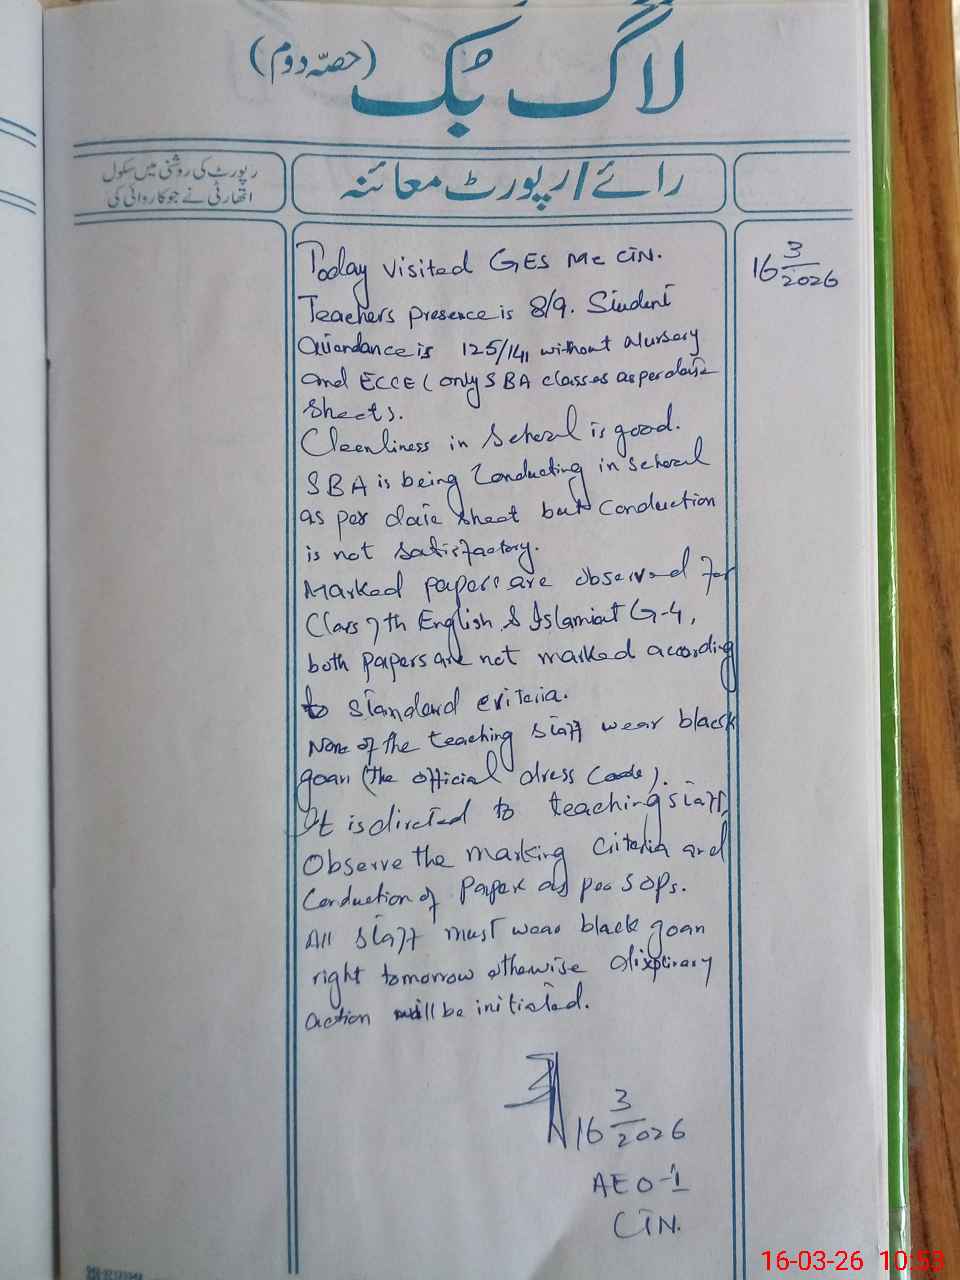 لاگ بُک (حصّہ دوم)
رپورٹ کی روشنی میں سکول
اتھارٹی نے جو کاروائی کی
رائے/رپورٹ معائنہ
16 3/2026
Today visited GES MC CTN.
Teachers presence is 8/9. Student
attendance is 125/141 without Nursery
and ECCE (only SBA classes as per date
sheets.
Cleenliness in School is good.
SBA is being Conducting in School
as per date sheet but Conduction
is not satisfactory.
Marked papers are observed for
Class 7th English & Islamiat G-4,
both papers are not marked according
to standard criteria.
None of the teaching staff wear black
goan (the official dress Code).
It is directed to teaching staff,
Observe the marking Criteria and
Conduction of Paper as per SOPs.
All staff must wear black goan
right tomorrow otherwise
action will be initiated.
16 3/2026
AEO-1
CTN.
16-03-26 10:53